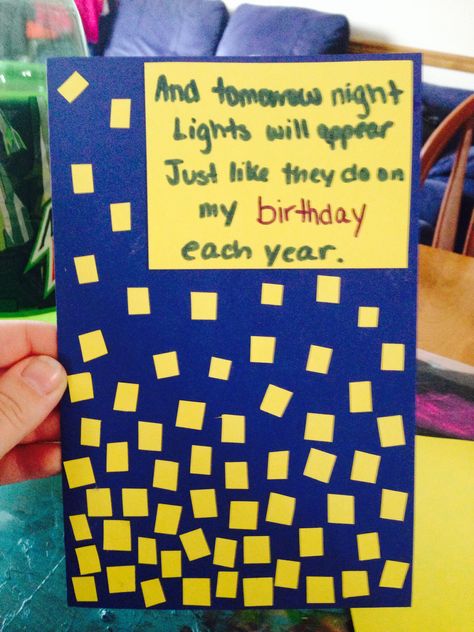 And tomorrow night
Lights will appear
Just like they do on
my birthday
each year.